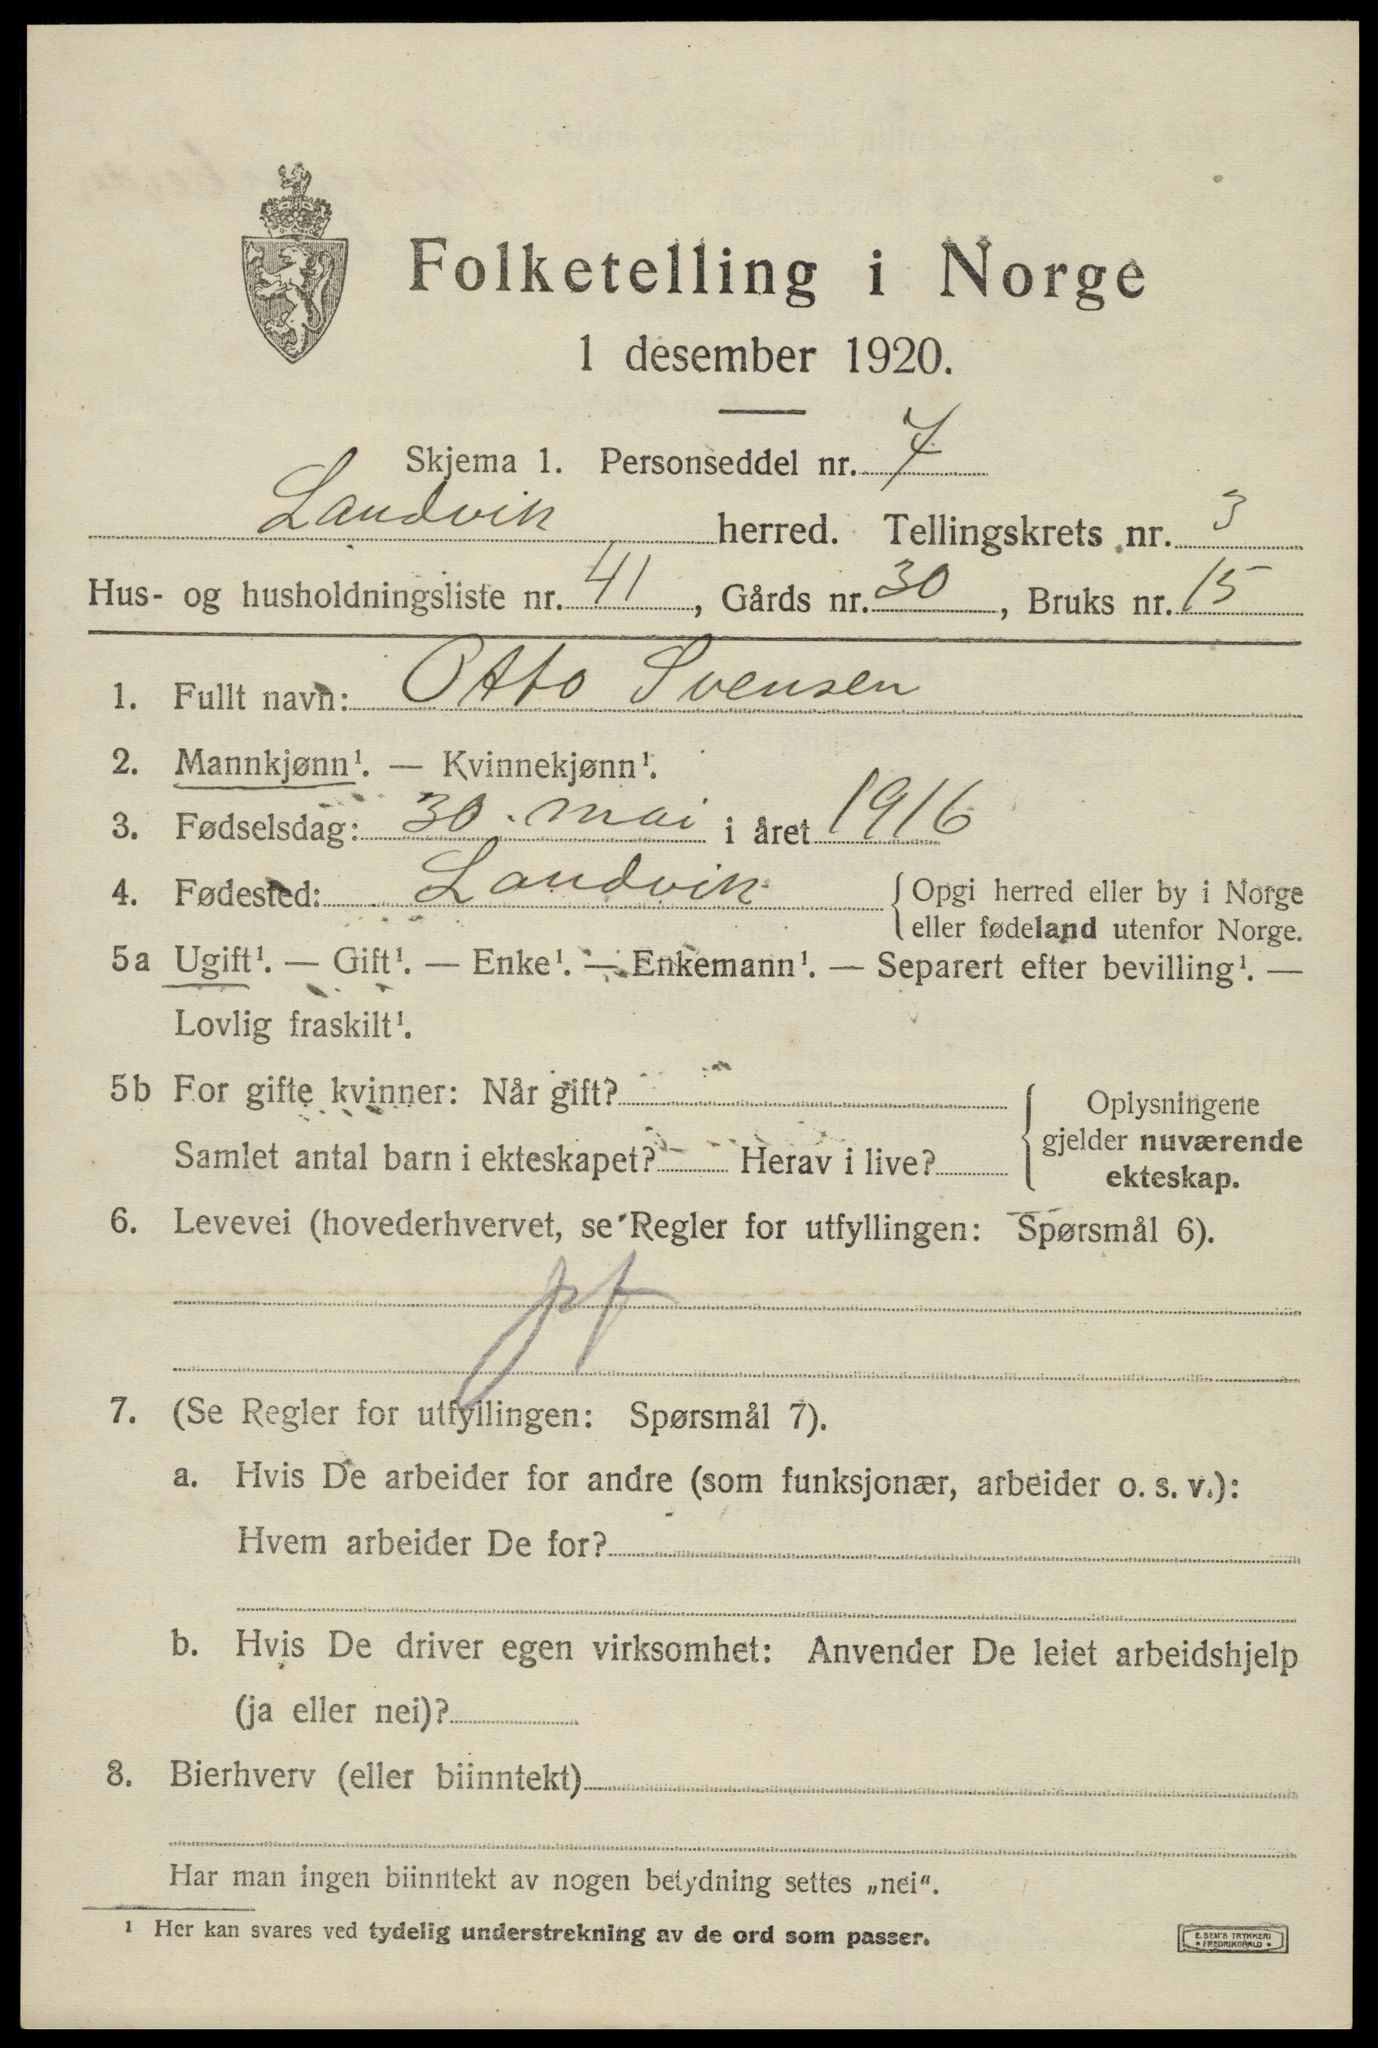 Folketelling i Norge
1 desember 1920.
Skjema 1. Personseddel nr. 7
Landvik herred. Tellingskrets nr. 3
Hus- og husholdningsliste nr. 41, Gårds nr. 30, Bruks nr. 15
1. Fullt navn: Otto Svensen
2. Mannkjønn¹. — Kvinnekjønn¹.
3. Fødselsdag: 30. mai i året 1916
4. Fødested: Landvik { Opgi herred eller by i Norge
eller fødeland utenfor Norge.
5a Ugift¹. — Gift¹. — Enke¹. — Enkemann¹. — Separert efter bevilling¹. —
Lovlig fraskilt¹.
5b For gifte kvinner: Når gift?
Samlet antal barn i ekteskapet? Herav i live?
{ Oplysningene
gjelder nuværende
ekteskap.
6. Levevei (hovederhvervet, se Regler for utfyllingen: Spørsmål 6).
7. (Se Regler for utfyllingen: Spørsmål 7).
a. Hvis De arbeider for andre (som funksjonær, arbeider o. s. v.):
Hvem arbeider De for?
b. Hvis De driver egen virksomhet: Anvender De leiet arbeidshjelp
(ja eller nei)?
8. Bierhverv (eller biinntekt)
Har man ingen biinntekt av nogen betydning settes „nei“.
¹ Her kan svares ved tydelig understrekning av de ord som passer.
E. SEM'S TRYKKERI
• FREDRIKSHALD •